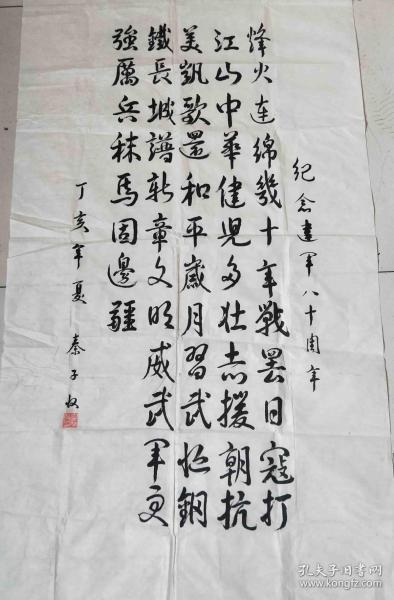 纪念建军八十周年
烽火连绵幾十年戰罢日寇打
江山中華健児多壮志援朝抗
美凱歌還和平歲月習武忙鋼
鐵長城譜新章文明威武軍更
強厲兵秣馬固邊疆
丁亥年夏 秦子
孔夫子旧书网
www.kongfz.com